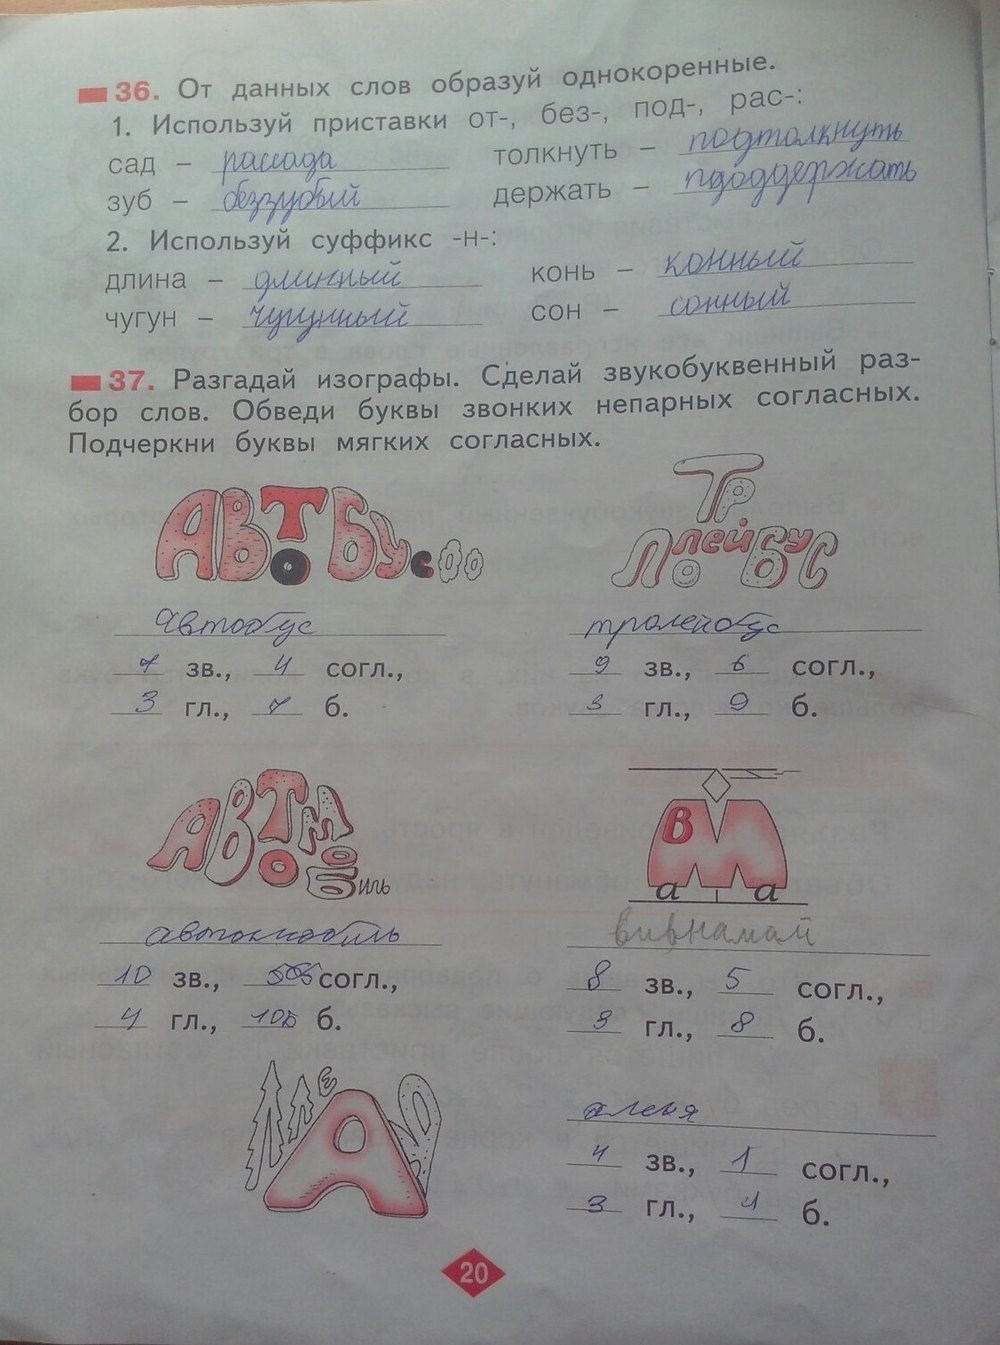 36. От данных слов образуй однокоренные.
1. Используй приставки от-, без-, под-, рас-:
сад – рассада толкнуть – подтолкнуть
зуб – беззубый держать – пдоддержать
2. Используй суффикс -н-:
длина – длинный конь – конный
чугун – чугунный сон – сонный
37. Разгадай изографы. Сделай звукобуквенный раз-
бор слов. Обведи буквы звонких непарных согласных.
Подчеркни буквы мягких согласных.
АВТОБУС
ТРОЛЛЕЙБУС
автобус
7 зв., 4 согл.,
3 гл., 7 б.
9 зв., 6 согл.,
3 гл., 9 б.
АВТОМОБиль
В М а а
10 зв., согл.,
4 гл., б.
8 зв., 5 согл.,
3 гл., 8 б.
АЛЛЕЯ
4 зв., 1 согл.,
3 гл., 4 б.
20